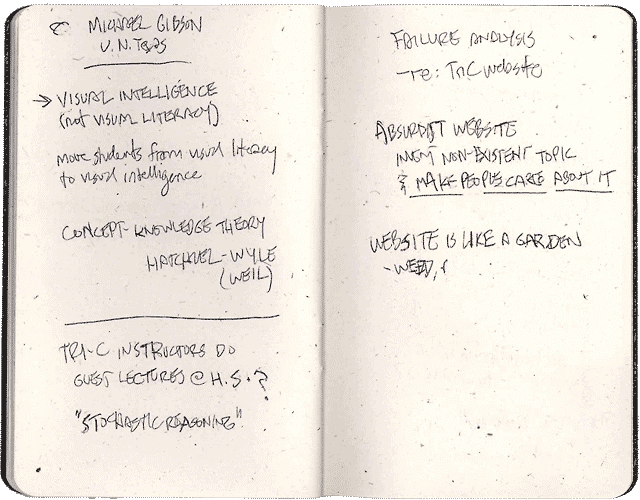 MICHAEL GIBSON
U.N. TEXAS
→ VISUAL INTELLIGENCE
(not VISUAL LITERACY)
move students from visual literacy
to visual intelligence
CONCEPT-KNOWLEDGE THEORY
HATCHUEL-WYLE
(WEIL)
TRI-C INSTRUCTORS DO
GUEST LECTURES @ H.S.?
"STOCHASTIC REASONING"
FAILURE ANALYSIS
- re: TriC website
ABSURDIST WEBSITE
INVENT NON-EXISTENT TOPIC
& MAKE PEOPLE CARE ABOUT IT
WEBSITE IS LIKE A GARDEN
- WEED,